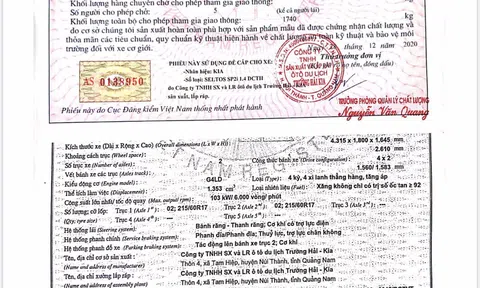 Khối lượng hàng chuyên chở cho phép tham gia giao thông:
Số người cho phép chở: 5 (kể cả người lái)
Khối lượng toàn bộ cho phép tham gia giao thông: 1740 kg
do cơ sở chúng tôi sản xuất hoàn toàn phù hợp với sản phẩm mẫu đã được chứng nhận chất lượng và
thỏa mãn các tiêu chuẩn, quy chuẩn kỹ thuật hiện hành về chất lượng an toàn kỹ thuật và bảo vệ môi
trường đối với xe cơ giới.
tháng 12 năm 2020
Thủ trưởng đơn vị
PHIẾU NÀY SỬ DỤNG ĐỂ CẤP CHO XE:
-Nhãn hiệu: KIA
-Số loại: SELTOS SP2i 1.4 DCTH
do Công ty TNHH SX và LR ôtô du lịch Trường Hải-Kia
sản xuất, lắp ráp.
AS 0138950
CÔNG TY
TNHH
SẢN XUẤT VÀ LẮP RÁP
Ô TÔ DU LỊCH
TRƯỜNG HẢI-KIA
Phiếu này do Cục Đăng kiểm Việt Nam thống nhất phát hành
TRƯỞNG PHÒNG QUẢN LÝ CHẤT LƯỢNG
Nguyễn Văn Quang
Kích thước xe (Dài x Rộng x Cao) (Overall dimensions (L x W x H)): 4.315 x 1.800 x 1.645 mm
Khoảng cách trục (Wheel space): 2.610 mm
Số trục xe (Number of axles): 2 Công thức bánh xe (Drive configuration): 4 x 2
Vết bánh xe các trục (Axles track): 1.560/ 1.583 mm
Kiểu động cơ (Engine model): G4LD Loại (Type): 4 kỳ, 4 xi lanh thẳng hàng, tăng áp
Thể tích làm việc (Displacement): 1.353 cm³ Loại nhiên liệu (Fuel): Xăng không chì có trị số ốc tan ≥ 92
Công suất lớn nhất/ tốc độ quay (Max. output/ rpm): 103 kW/ 6.000 vòng/ phút
Số lượng; cỡ lốp: Trục 1 (Axle 1st): 02; 215/60R17 Trục 2 (Axle 2nd): 02; 215/60R17 Trục 3
(Qty; tyre size)
Hệ thống lái (Steering system): Bánh răng - Thanh răng; Cơ khí có trợ lực điện
Hệ thống phanh chính (Service braking system): Phanh đĩa/Phanh đĩa; Thuỷ lực, trợ lực chân không
Hệ thống phanh đỗ xe (Parking braking system): Tác động lên bánh xe trục 2; Cơ khí
Tên, địa chỉ cơ sở sản xuất: Công ty TNHH SX và LR ô tô du lịch Trường Hải - Kia
(Name and address of manufacturer) Thôn 4, xã Tam Hiệp, huyện Núi Thành, tỉnh Quảng Nam
Tên, địa chỉ xưởng lắp ráp: Công ty TNHH SX và LR ô tô du lịch Trường Hải - Kia
(Name and address of assembly plant) Thôn 4, xã Tam Hiệp, huyện Núi Thành, tỉnh Quảng Nam